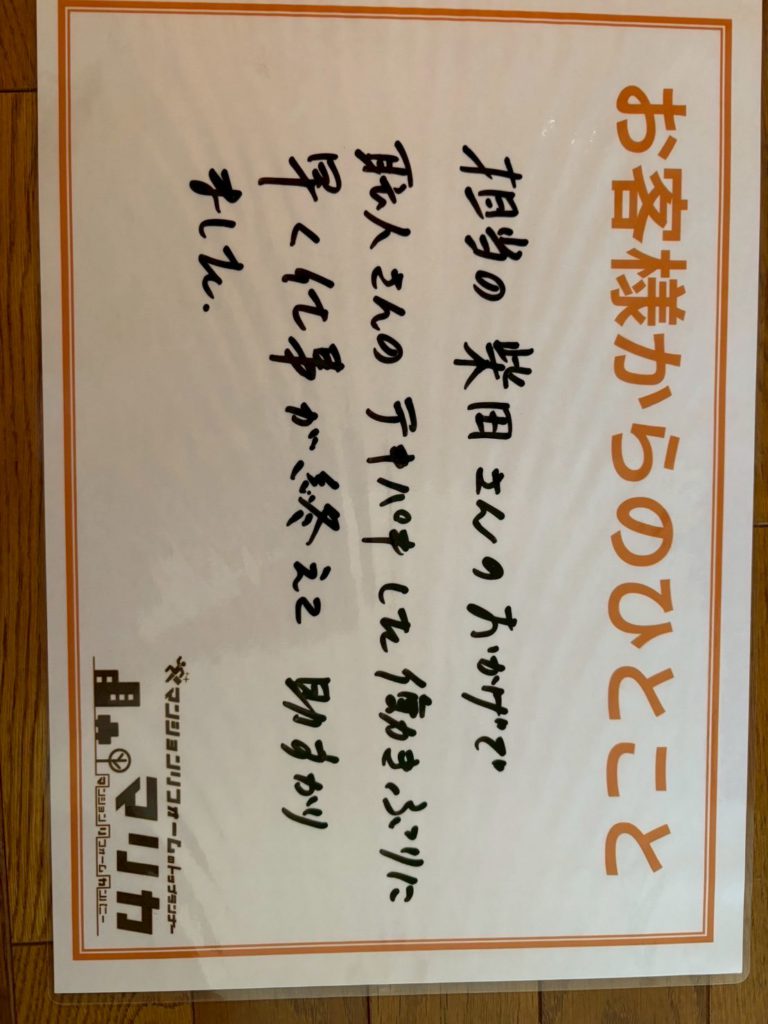 お客様からのひとこと
担当の 柴田さんのおかげで
職人さんの テキパキした働きぶりに
早く仕事が終えて 助すかり
ました.
マンションリフォームのトップランナー
マリカ
マンションリフォームカンパニー